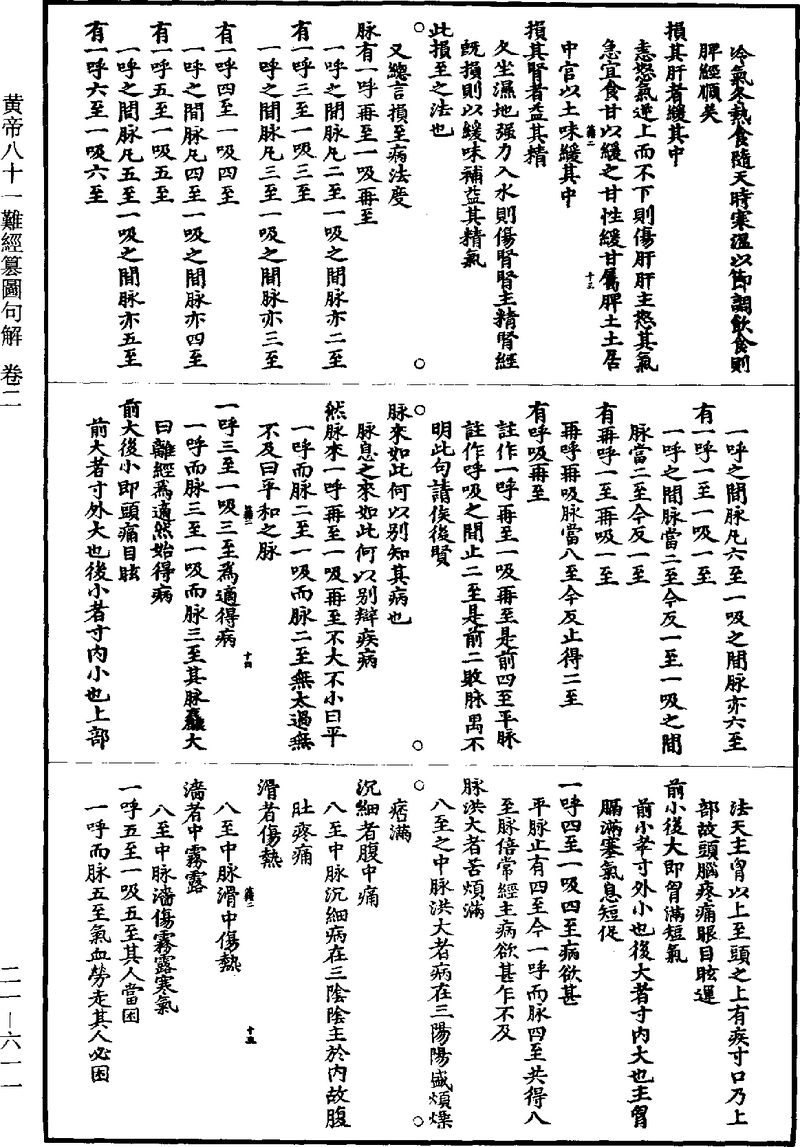 冷氣冬熱食隨天時寒溫以節調飲食則
脾經順矣
損其肝者緩其中
恚怒氣逆上而不下則傷肝肝主怒其氣
急宜食甘以緩之甘性緩甘屬脾土土居
中宮以土味緩其中
損其腎者益其精
久坐濕地强力入水則傷腎腎主精腎經
旣損則以緩味補益其精氣
此損至之法也
○
又總言損至病法度
脉有一呼再至一吸再至
一呼之間脉凡二至一吸之間脉亦二至
有一呼三至一吸三至
一呼之間脉凡三至一吸之間脉亦三至
有一呼四至一吸四至
一呼之間脉凡四至一吸之間脉亦四至
有一呼五至一吸五至
一呼之間脉凡五至一吸之間脉亦五至
有一呼六至一吸六至
一呼之間脉凡六至一吸之間脉亦六至
有一呼一至一吸一至
一呼之間脉當二至今反一至一吸之間
脉當二至今反一至
有再呼一至再吸一至
再呼再吸脉當八至今反止得二至
有呼吸再至
註作一呼再至一吸再至是前四至平脉
註作呼吸之間止二至是前二敗脉禺不
明此句請俟後賢
○
脉來如此何以別知其病也
脉息之來如此何以別辯疾病
然脉來一呼再至一吸再至不大不小曰平
一呼而脉二至一吸而脉二至無太過無
不及曰平和之脉
一呼三至一吸三至爲適得病
一呼而脉三至一吸而脉三至其脉麤大
曰離經爲適然始得病
前大後小即頭痛目眩
前大者寸外大也後小者寸内小也上部
法天主胷以上至頭之上有疾寸口乃上
部故頭腦疼痛眼目眩運
前小後大即胷滿短氣
前小者寸外小也後大者寸内大也主胷
膈滿塞氣息短促
一呼四至一吸四至病欲甚
平脉止有四至今一呼而脉四至共得八
至脉倍常經主病欲甚乍不及
脉洪大者苦煩滿
八至之中脉洪大者病在三陽陽盛煩燥
○
痞滿
沉細者腹中痛
八至中脉沉細病在三陰陰主於内故腹
肚疼痛
滑者傷熱
八至中脉滑中傷熱
濇者中霧露
八至中脉濇傷霧露寒氣
一呼五至一吸五至其人當困
一呼而脉五至氣血勞走其人必困
黄帝八十一難經纂圖句解　卷二
二一—六一一